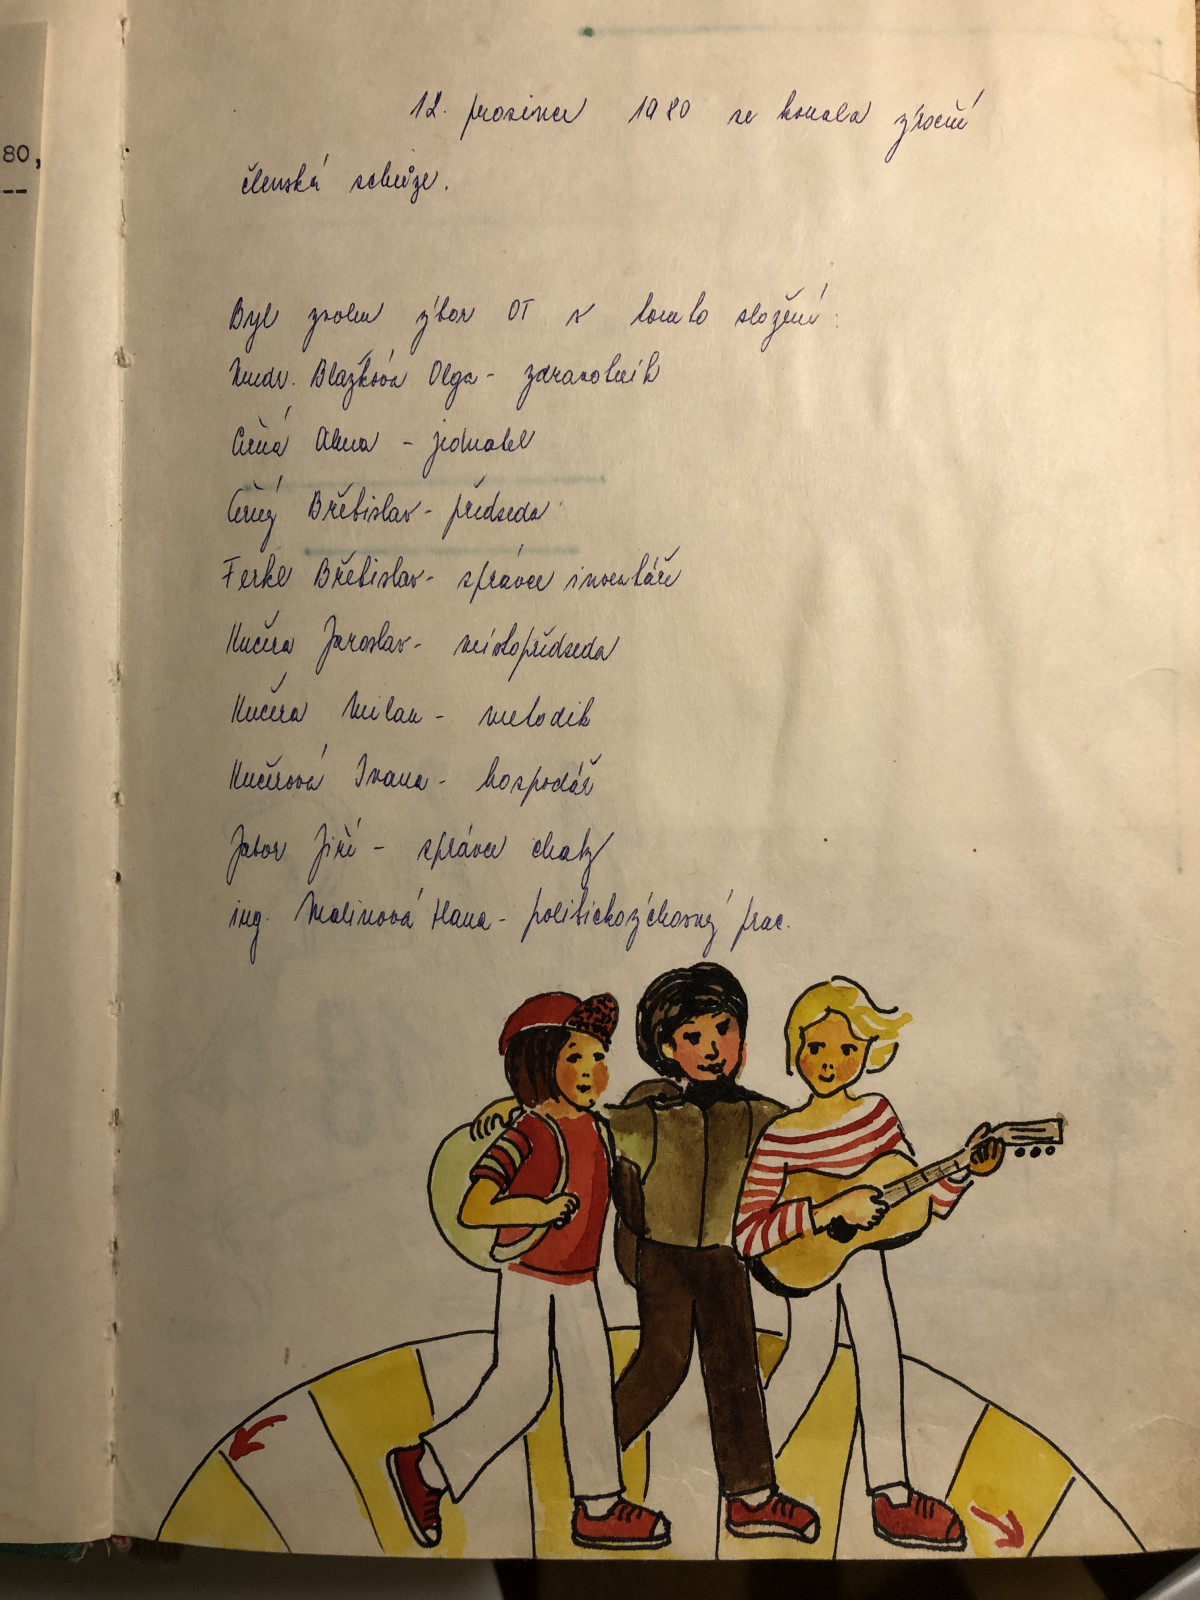 80,
--
12. prosince 1980 se konala výroční
členská schůze.
Byl zvolen výbor OT v tomto složení:
Mudr. Blažková Olga - zdravotník
Černá Alena - jednatel
Černý Břetislav - předseda
Ferkl Břetislav - správce inventáře
Kučera Jaroslav - místopředseda
Kučera Milan - metodik
Kučerová Ivana - hospodář
Jabor Jiří - správce chaty
ing. Malinová Hana - politickovýchovný prac.